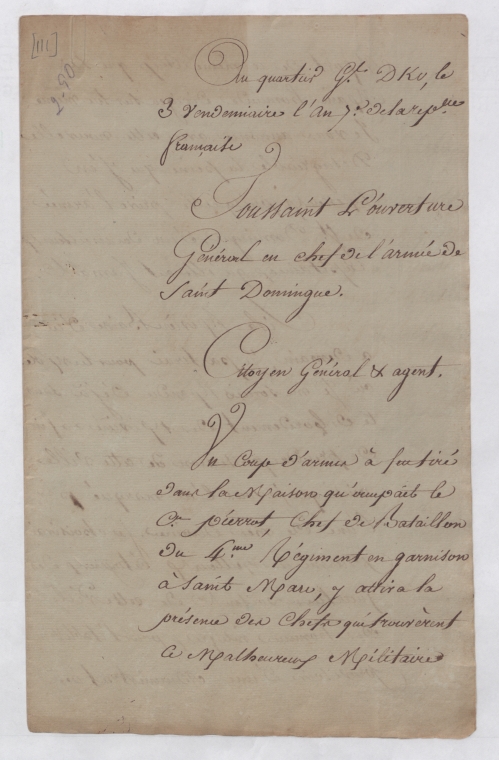 [111]
2-90
Au quartier Gal. DKO, le
3 Vendemiaire l'An 7e. de la repque
française
Toussaint L'ouverture
Général en chef de l'armée de
Saint Domingue.
Citoyen Général & agent.
Un Coup d'armes à feu tiré
dans la Maison qu'occupait le
Cn. pierrot, Chef de Bataillon
du 4.me Régiment en garnison
à Saint Marc, y attira la
présence des Chefs qui trouvèrent
ce Malheureux Militaire